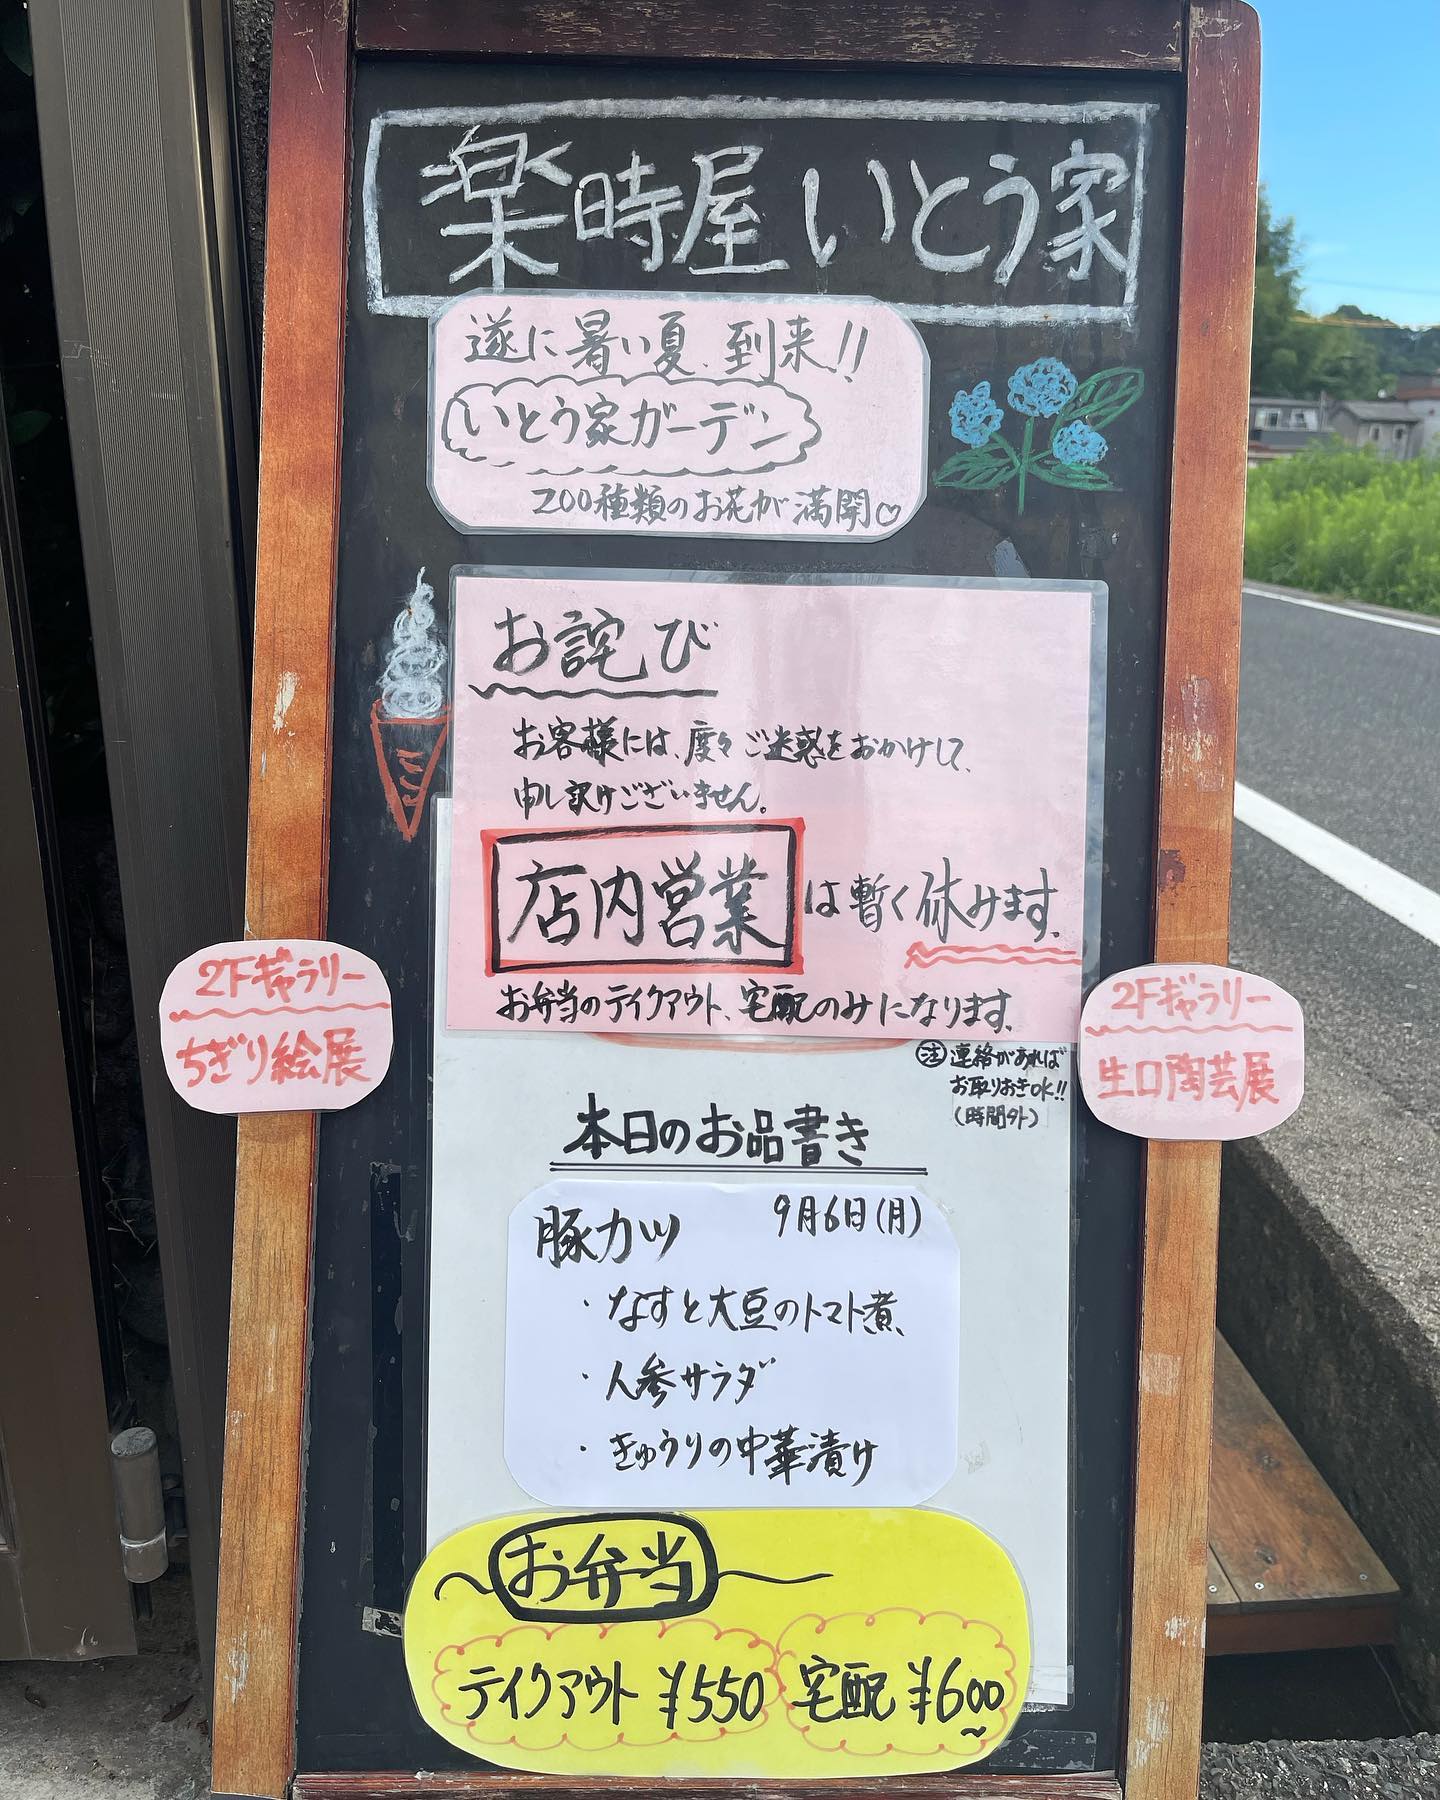 楽時屋 いとう家
遂に暑い夏、到来!!
いとう家ガーデン
200種類のお花が満開♡
お詫び
お客様には、度々ご迷惑をおかけして、
申し訳けございません。
店内営業は暫く休みます。
お弁当のテイクアウト、宅配のみになります。
2Fギャラリー
ちぎり絵展
2Fギャラリー
生口陶芸展
注 連絡があれば
お取りおきOK!!
(時間外)
本日のお品書き
9月6日(月)
豚カツ
・なすと大豆のトマト煮
・人参サラダ
・きゅうりの中華漬け
お弁当
テイクアウト ¥550 宅配 ¥600~